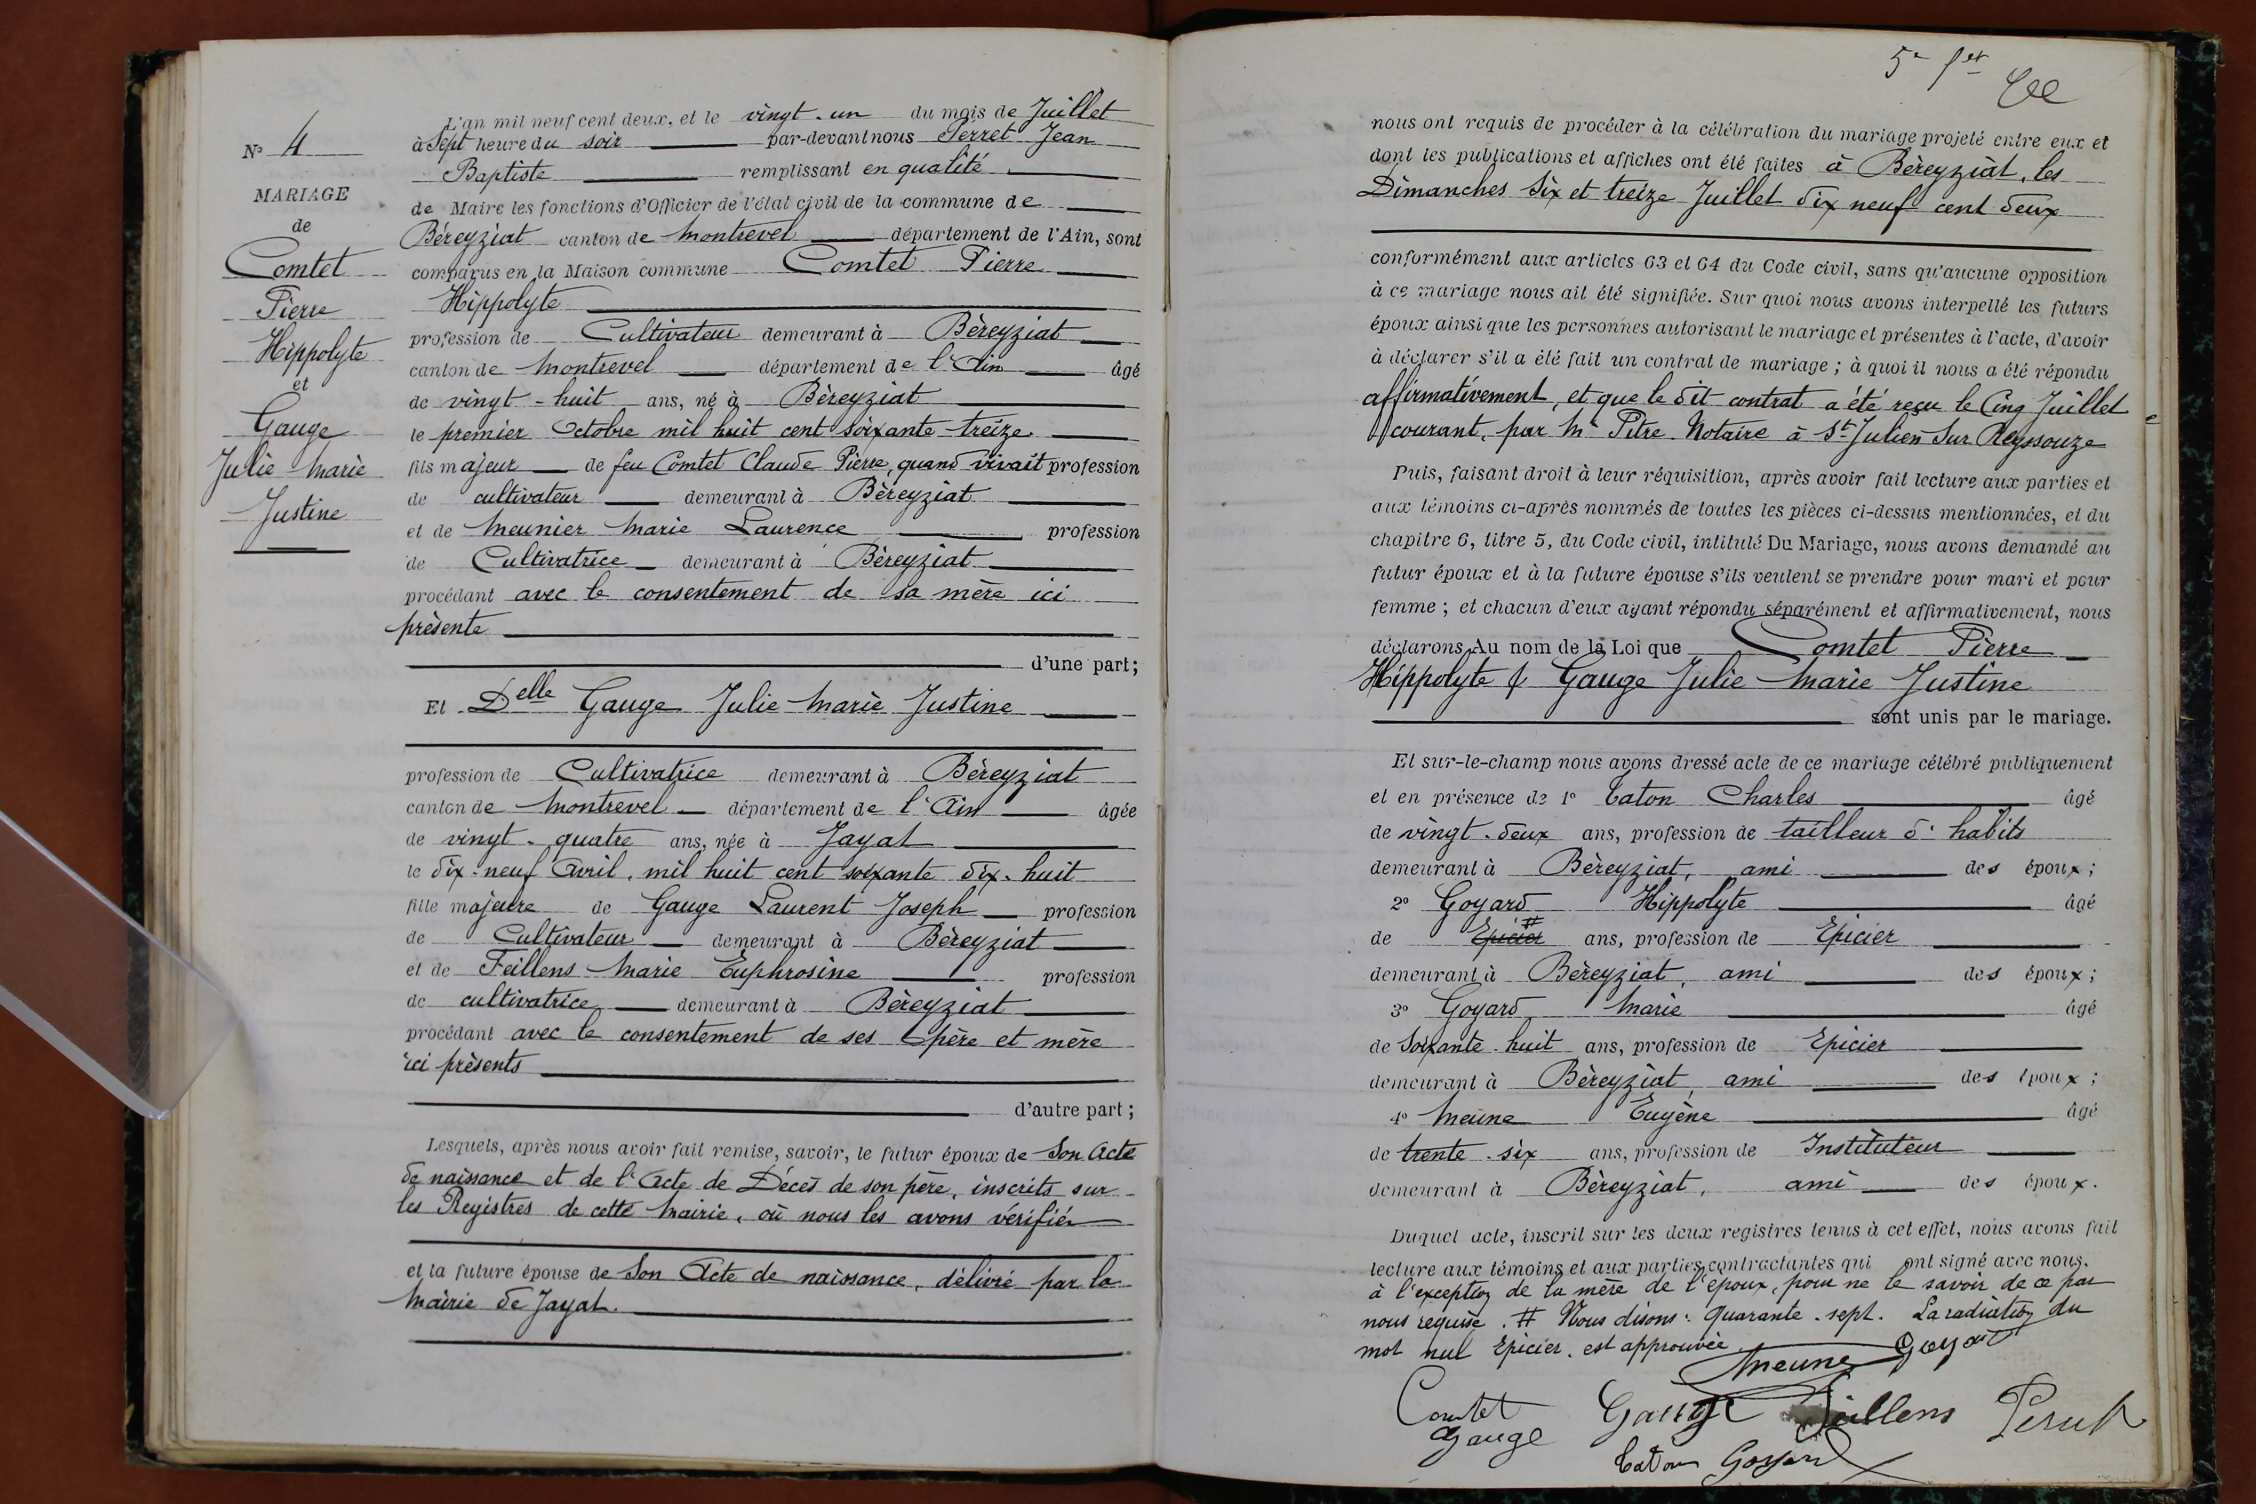 L'an mil neuf cent deux, et le vingt-un du mois de Juillet
à Sept heure du soir par-devant nous Perret Jean
Baptiste remplissant en qualité
de Maire les fonctions d'Officier de l'état civil de la commune de
Béreyziat canton de Montrevel département de l'Ain, sont
comparus en la Maison commune Comtet Pierre
Hippolyte
profession de Cultivateur demeurant à Béreyziat
canton de Montrevel département de l'Ain âgé
de vingt-huit ans, né à Béreyziat
le premier Octobre mil huit cent soixante-treize
fils majeur de feu Comtet Claude Pierre, quand vivait profession
de cultivateur demeurant à Béreyziat
et de Meunier Marie Laurence profession
de Cultivatrice demeurant à Béreyziat
procédant avec le consentement de sa mère ici
présente
d'une part;
Et Delle Gauge Julie Marie Justine
profession de Cultivatrice demeurant à Béreyziat
canton de Montrevel département de l'Ain âgée
de vingt-quatre ans, née à Jayat
le dix-neuf Avril, mil huit cent soixante dix-huit
fille majeure de Gauge Laurent Joseph profession
de Cultivateur demeurant à Béreyziat
et de Feillens Marie Euphrosine profession
de cultivatrice demeurant à Béreyziat
procédant avec le consentement de ses père et mère
ici présents
d'autre part;
Lesquels, après nous avoir fait remise, savoir, le futur époux de Son Acte
de naissance et de l'Acte de Décès de son père, inscrits sur
les Registres de cette Mairie, où nous les avons vérifiés
et la future épouse de Son Acte de naissance, délivré par la
Mairie de Jayat.
N° 4
MARIAGE
de
Comtet
Pierre
Hippolyte
et
Gauge
Julie Marie
Justine
nous ont requis de procéder à la célébration du mariage projeté entre eux et
dont les publications et affiches ont été faites à Béreyziat, les
Dimanches Six et treize Juillet dix neuf cent deux
conformément aux articles 63 et 64 du Code civil, sans qu'aucune opposition
à ce mariage nous ait été signifiée. Sur quoi nous avons interpellé les futurs
époux ainsi que les personnes autorisant le mariage et présentes à l'acte, d'avoir
à déclarer s'il a été fait un contrat de mariage; à quoi il nous a été répondu
affirmativement, et que le dit contrat a été reçu le Cinq Juillet
courant, par Me Pitre Notaire à St Julien Sur Reyssouze
Puis, faisant droit à leur réquisition, après avoir fait lecture aux parties et
aux témoins ci-après nommés de toutes les pièces ci-dessus mentionnées, et du
chapitre 6, titre 5, du Code civil, intitulé Du Mariage, nous avons demandé au
futur époux et à la future épouse s'ils veulent se prendre pour mari et pour
femme; et chacun d'eux ayant répondu séparément et affirmativement, nous
déclarons Au nom de la Loi que Comtet Pierre
Hippolyte & Gauge Julie Marie Justine
sont unis par le mariage.
Et sur-le-champ nous avons dressé acte de ce mariage célébré publiquement
et en présence de 1° Caton Charles âgé
de vingt-deux ans, profession de tailleur d'habits
demeurant à Béreyziat, ami des époux;
2° Goyard Hippolyte âgé
de Epicier # ans, profession de Epicier
demeurant à Béreyziat, ami des époux;
3° Goyard Marie âgé
de Soixante-huit ans, profession de Epicier
demeurant à Béreyziat, ami des époux;
4° Meune Eugène âgé
de trente-six ans, profession de Instituteur
demeurant à Béreyziat, ami des époux.
Duquel acte, inscrit sur les deux registres tenus à cet effet, nous avons fait
lecture aux témoins et aux parties contractantes qui ont signé avec nous.
à l'exception de la mère de l'époux, pour ne le savoir de ce par
nous requise. # Nous disons: quarante-sept. La radiation du
mot nul Epicier. est approuvée
Meune Goyard
Comtet Gauge Feillens Perret
Gauge
Caton Goyard